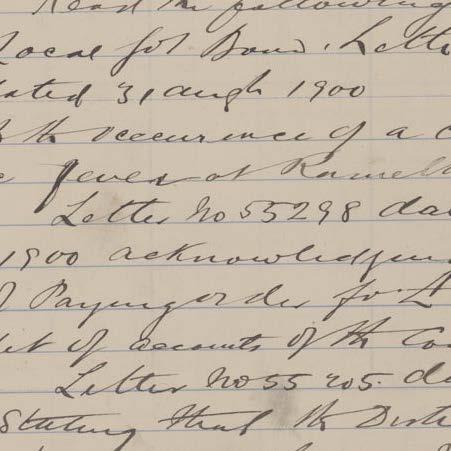 Read the following
Local Gov Board. Lette
dated 31 augt 1900
the occurence of a c
fever at Ramelt
Letter No 55298 da
1900 acknowledging
Paying order for £
of accounts of the Co
Letter No 55205. da
Stating that the Distr